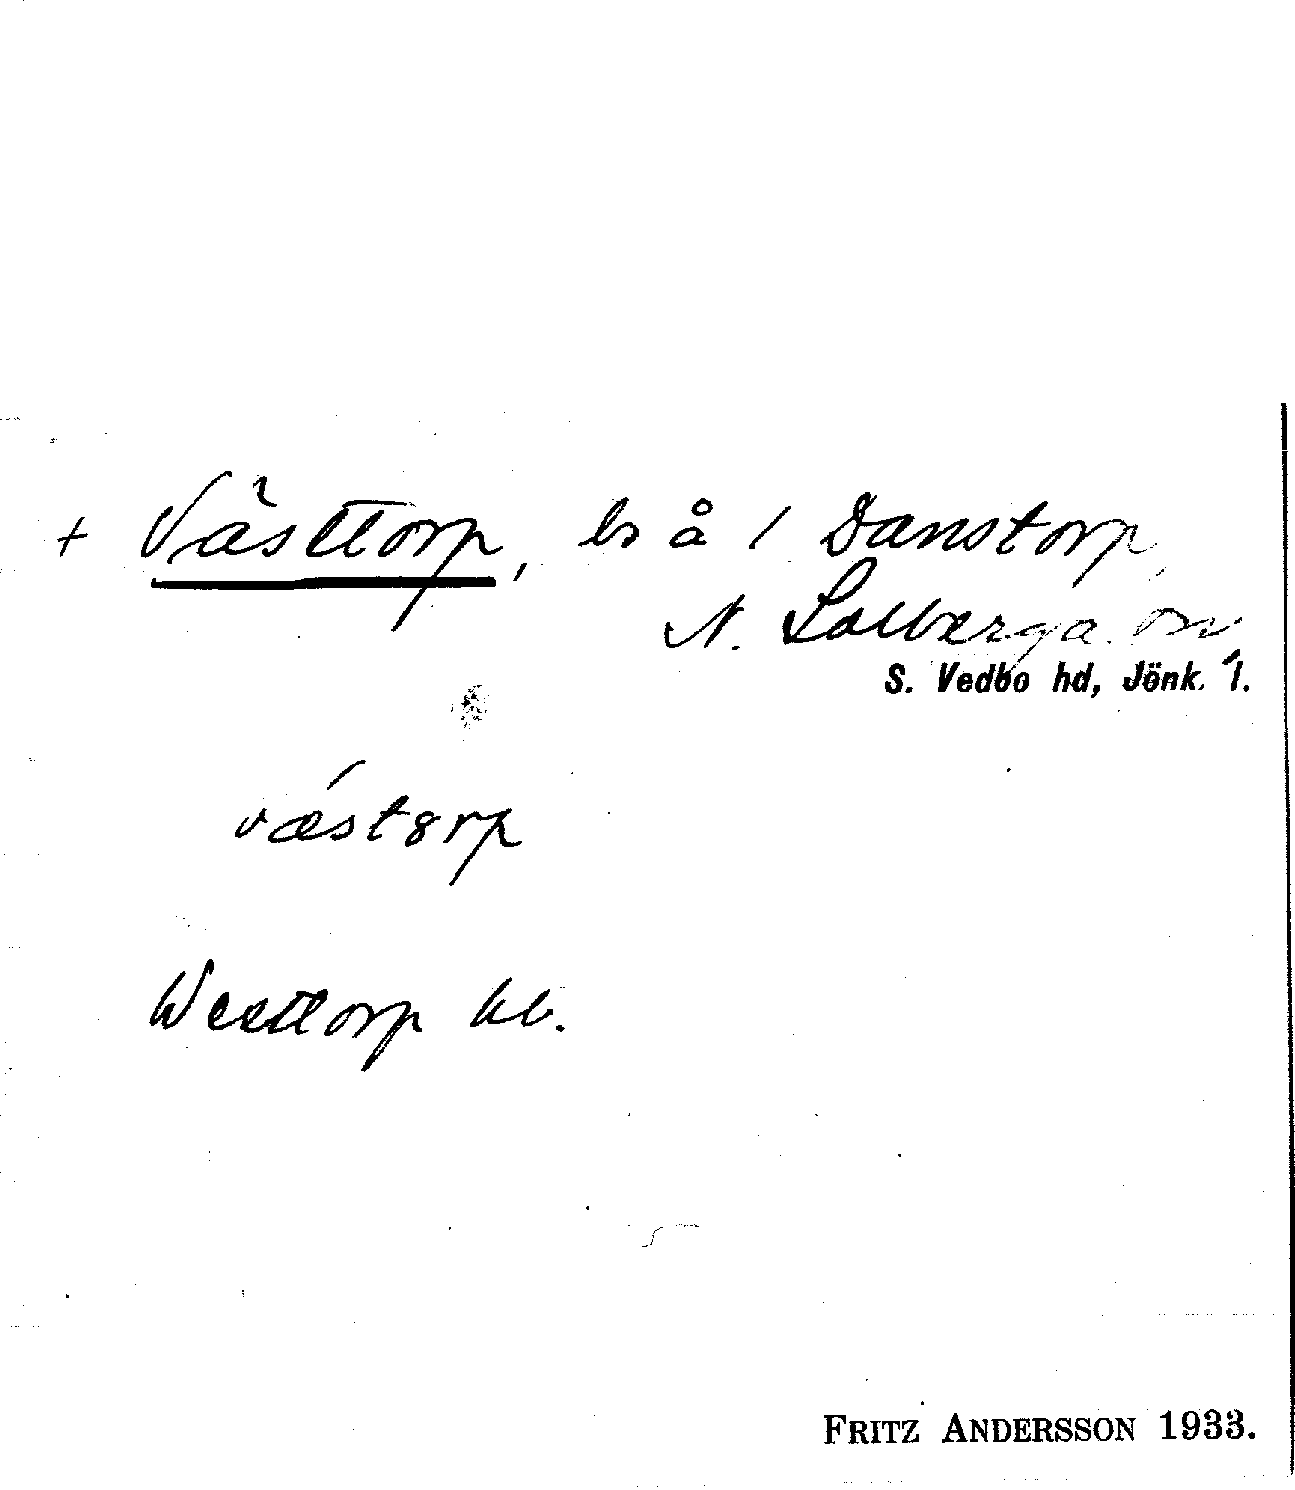 + Västtorp, ls å 1 Danstorp,
N. Solberga sn
S. Vedbo hd, Jönk. l.
væstorp
Westtorp kb.
FRITZ ANDERSSON 1933.